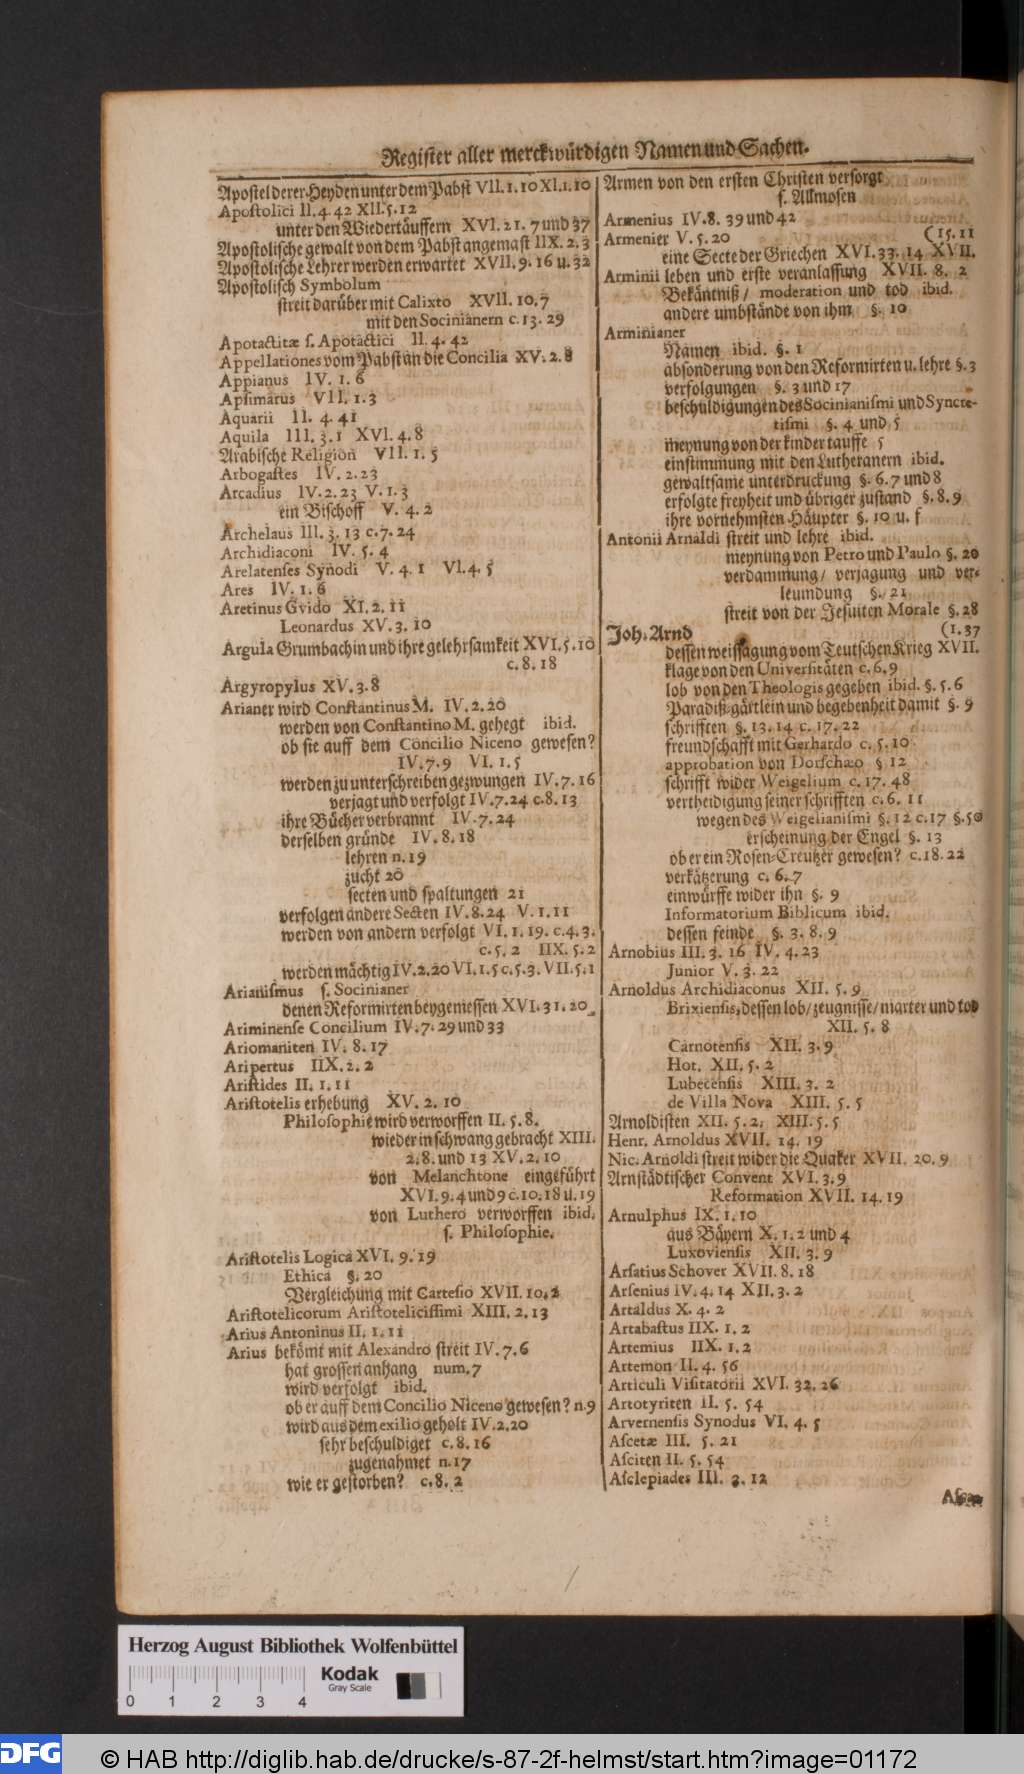 Register aller merckwürdigen Namen und Sachen.
Apostel derer Heyden unter dem Pabst VII. 1. 10 XI. 1. 10
Apostolici II. 4. 42 XII. 5. 12
unter den Wiedertäuffern XVI. 21. 7 und 37
Apostolische gewalt von dem Pabst angemast IIX. 2. 3
Apostolische Lehrer werden erwartet XVII. 9. 16 u. 32
Apostolisch Symbolum
streit darüber mit Calixto XVII. 10. 7
mit den Socinianern c. 13. 29
Apotactitæ s. Apotactici II. 4. 42
Appellationes vom Pabst an die Concilia XV. 2. 8
Appianus IV. 1. 6
Apsimarus VII. 1. 3
Aquarii II. 4. 41
Aquila III. 3. 1 XVI. 4. 8
Arabische Religion VII. 1. 5
Arbogastes IV. 2. 23
Arcadius IV. 2. 23 V. 1. 3
ein Bischoff V. 4. 2
Archelaus III. 3. 13 c. 7. 24
Archidiaconi IV. 5. 4
Arelatenses Synodi V. 4. 1 VI. 4. 5
Ares IV. 1. 6
Aretinus Gvido XI. 2. 11
Leonardus XV. 3. 10
Argula Grumbachin und ihre gelehrsamkeit XVI. 5. 10
c. 8. 18
Argyropylus XV. 3. 8
Arianer wird Constantinus M. IV. 2. 20
werden von Constantino M. gehegt ibid.
ob sie auff dem Concilio Niceno gewesen?
IV. 7. 9 VI. 1. 5
werden zu unterschreiben gezwungen IV. 7. 16
verjagt und verfolgt IV. 7. 24 c. 8. 13
ihre Bücher verbrannt IV. 7. 24
derselben gründe IV. 8. 18
lehren n. 19
zucht 20
secten und spaltungen 21
verfolgen andere Secten IV. 8. 24 V. 1. 11
werden von andern verfolgt VI. 1. 19. c. 4. 3.
c. 5. 2 IIX. 5. 2
werden mächtig IV. 2. 20 VI. 1. 5 c. 5. 3. VII. 5. 1
Arianismus s. Socinianer
denen Reformirten beygemessen XVI. 31. 20
Ariminense Concilium IV. 7. 29 und 33
Ariomaniten IV. 8. 17
Aripertus IIX. 2. 2
Aristides II. 1. 11
Aristotelis erhebung XV. 2. 10
Philosophie wird verworffen II. 5. 8.
wieder in schwang gebracht XIII.
2. 8. und 13 XV. 2. 10
von Melanchtone eingeführt
XVI. 9. 4 und 9 c. 10. 18 u. 19
von Luthero verworffen ibid.
s. Philosophie.
Aristotelis Logica XVI. 9. 19
Ethica §. 20
Vergleichung mit Cartesio XVII. 10. 2
Aristotelicorum Aristotelicissimi XIII. 2. 13
Arius Antoninus II. 1. 11
Arius bekömt mit Alexandro streit IV. 7. 6
hat grossen anhang num. 7
wird verfolgt ibid.
ob er auff dem Concilio Niceno gewesen? n. 9
wird aus dem exilio geholt IV. 2. 20
sehr beschuldiget c. 8. 16
zugenahmet n. 17
wie er gestorben? c. 8. 2
Armen von den ersten Christen versorgt
s. Allmosen
Armenius IV. 8. 39 und 42
Armenier V. 5. 20 (15. 11
eine Secte der Griechen XVI. 33. 14 XVII.
Arminii leben und erste veranlassung XVII. 8. 2
Bekäntniß / moderation und tod ibid.
andere umbstände von ihm §. 10
Arminianer
Namen ibid. §. 1
absonderung von den Reformirten u. lehre §. 3
verfolgungen §. 3 und 17
beschuldigungen des Socinianismi und Syncre-
tismi §. 4 und 5
meynung von der kinder tauffe 5
einstimmung mit den Lutheranern ibid.
gewaltsame unterdruckung §. 6. 7 und 8
erfolgte freyheit und übriger zustand §. 8. 9
ihre vornehmsten Häupter §. 10 u. f
Antonii Arnaldi streit und lehre ibid.
meynung von Petro und Paulo §. 20
verdammung / verjagung und ver-
leumdung §. 21
streit von der Jesuiten Morale §. 28
Joh. Arnd (1. 37
dessen weissagung vom Teutschen Krieg XVII.
klage von den Universitäten c. 6. 9
lob von den Theologis gegeben ibid. §. 5. 6
Paradiß-gärtlein und begebenheit damit §. 9
schrifften §. 13. 14 c. 17. 22
freundschafft mit Gerhardo c. 5. 10
approbation von Dorschæo § 12
schrifft wider Weigelium c. 17. 48
vertheidigung seiner schrifften c. 6. 11
wegen des Weigelianismi §. 12 c. 17 §. 50
erscheinung der Engel §. 13
ob er ein Rosen-Creutzer gewesen? c. 18. 22
verkätzerung c. 6. 7
einwürffe wider ihn §. 9
Informatorium Biblicum ibid.
dessen feinde §. 3. 8. 9
Arnobius III. 3. 16 IV. 4. 23
Junior V. 3. 22
Arnoldus Archidiaconus XII. 5. 9
Brixiensis, dessen lob / zeugnisse / marter und tod
XII. 5. 8
Carnotensis XII. 3. 9
Hot. XII. 5. 2
Lubecensis XIII. 3. 2
de Villa Nova XIII. 5. 5
Arnoldisten XII. 5. 2. XIII. 5. 5
Henr. Arnoldus XVII. 14. 19
Nic. Arnoldi streit wider die Quaker XVII. 20. 9
Arnstädtischer Convent XVI. 3. 9
Reformation XVII. 14. 19
Arnulphus IX. 1. 10
aus Bäyern X. 1. 2 und 4
Luxoviensis XII. 3. 9
Arsatius Schover XVII. 8. 18
Arsenius IV. 4. 14 XII. 3. 2
Artaldus X. 4. 2
Artabastus IIX. 1. 2
Artemius IIX. 1. 2
Artemon II. 4. 56
Articuli Visitatorii XVI. 32. 26
Artotyriten II. 5. 54
Arvernensis Synodus VI. 4. 5
Ascetæ III. 5. 21
Asciten II. 5. 54
Asclepiades III. 3. 12
Herzog August Bibliothek Wolfenbüttel
Kodak
Gray Scale
0 1 2 3 4
DFG © HAB http://diglib.hab.de/drucke/s-87-2f-helmst/start.htm?image=01172